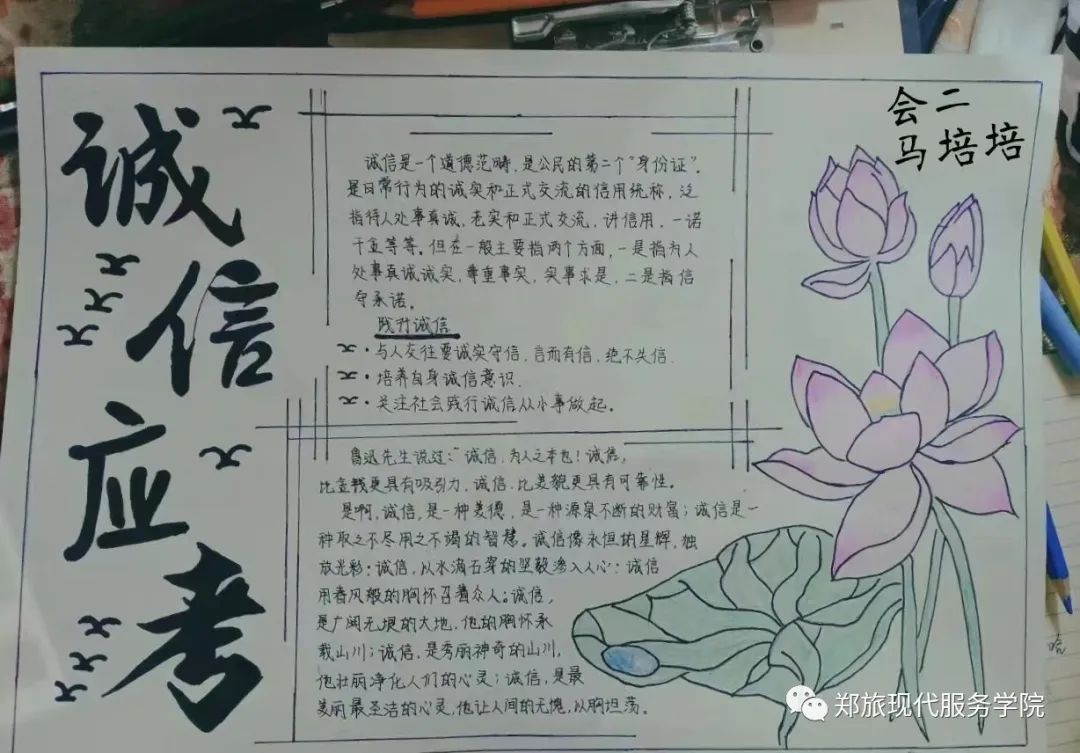 诚信应考
会二
马培培
诚信是一个道德范畴,是公民的第二个“身份证”。
是日常行为的诚实和正式交流的信用统称,泛
指待人处事真诚、老实和正式交流,讲信用,一诺
千金等等。但在一般主要指两个方面,一是指为人
处事真诚诚实,尊重事实,实事求是,二是指信
守承诺。
践行诚信
·与人交往要诚实守信,言而有信,绝不失信.
·培养自身诚信意识.
·关注社会践行诚信从小事做起。
鲁迅先生说过:“诚信,为人之本也!诚信,
比金钱更具有吸引力,诚信,比美貌更具有可靠性。
是啊,诚信,是一种美德,是一种源泉不断的财富;诚信是一
种取之不尽用之不竭的智慧。诚信像永恒的星辉,独
放光彩:诚信,以水滴石穿的坚毅渗入人心:诚信
用春风般的胸怀召着众人。诚信,
是广阔无垠的大地,他的胸怀承
载山川;诚信,是秀丽神奇的山川,
他壮丽净化人们的心灵;诚信,是最
美丽最圣洁的心灵,他让人间的无愧,以胸坦荡。
郑旅现代服务学院